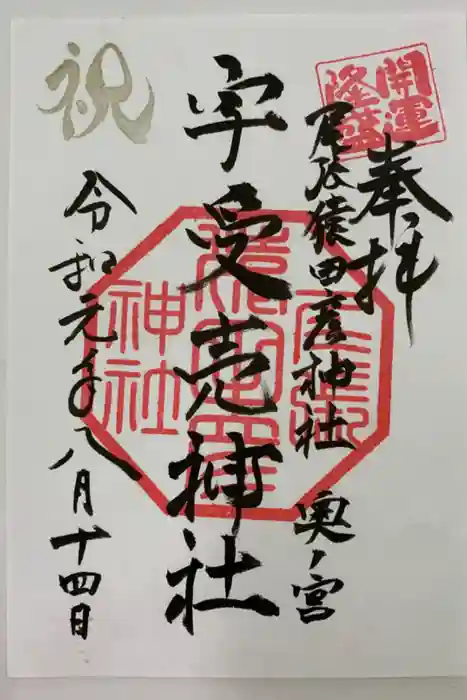 開運
隆盛
奉拝
尾張猿田彦神社 奥ノ宮
宇受売神社
祝
令和元年八月十四日
神社